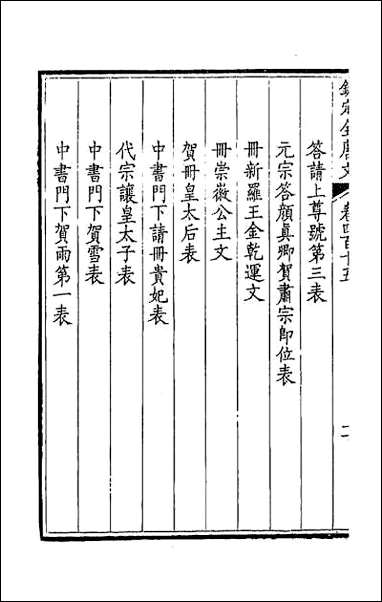 欽定全唐文
卷四百十五
二
答請上尊號第三表
元宗答顔眞卿賀肅宗卽位表
冊新羅王金乾運文
冊崇徽公主文
賀冊皇太后表
中書門下請冊貴妃表
代宗讓皇太子表
中書門下賀雪表
中書門下賀雨第一表